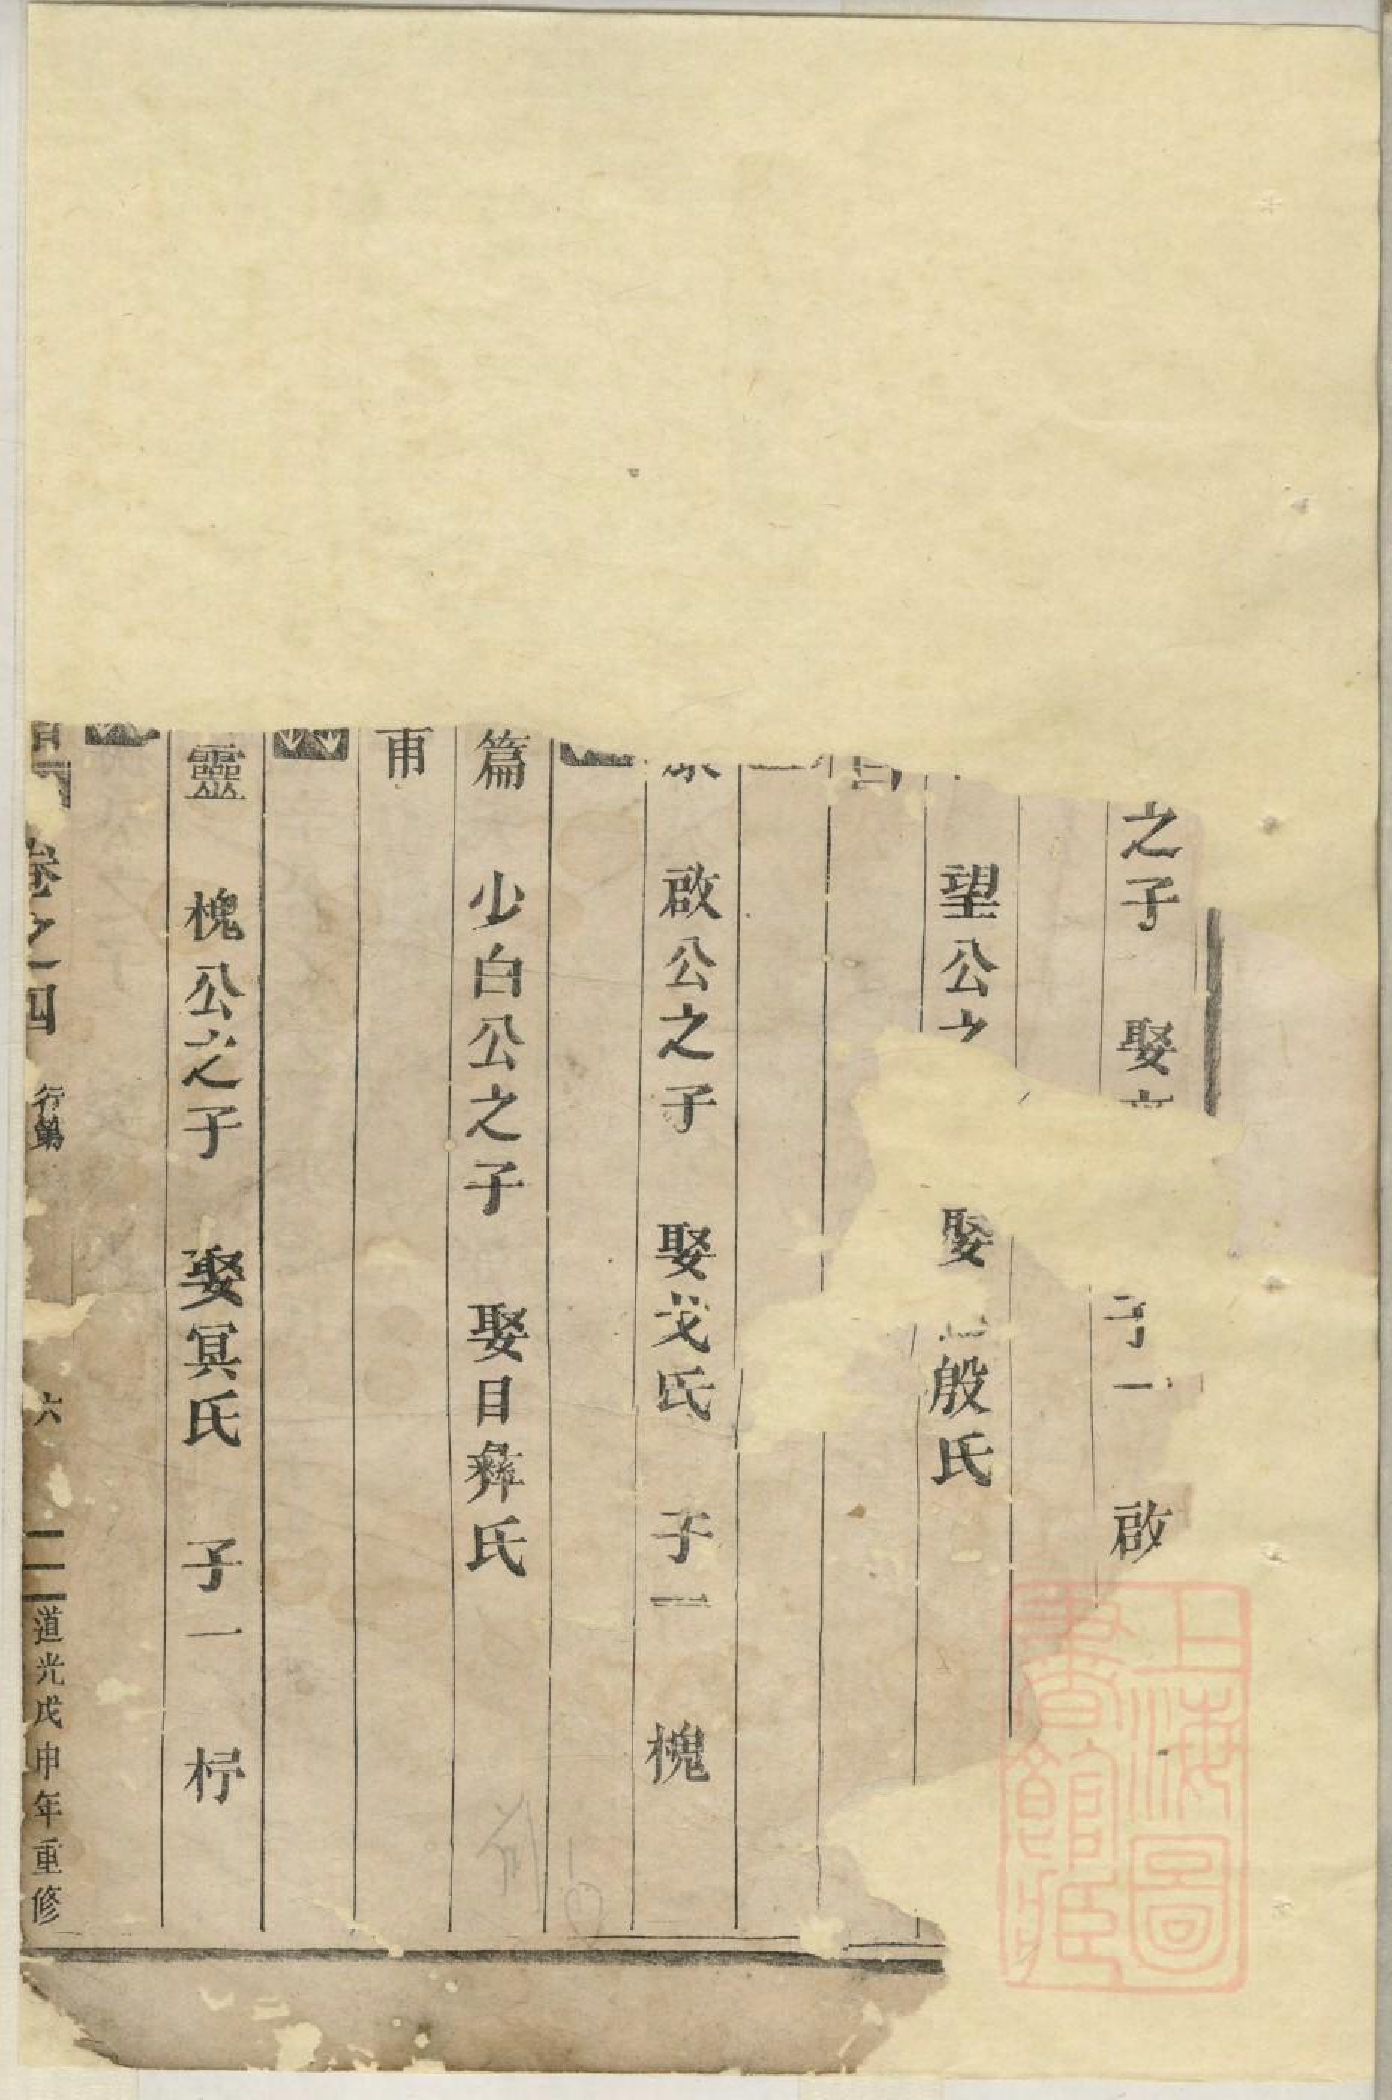 之子 娶 子一 啟
望公 娶 殷氏
啟公之子 娶戈氏 子一 槐
篇 少白公之子 娶目彝氏
甫
靈 槐公之子 娶冥氏 子一 杼
卷之四 行第 六 道光戊申年重修
上海圖書館藏